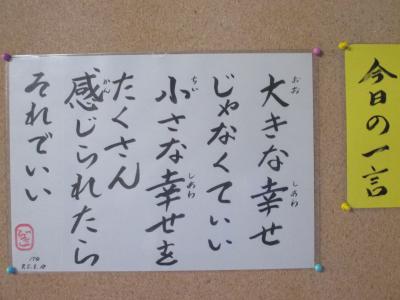 今日の一言
大きな幸せ
じゃなくていい
小さな幸せを
たくさん
感じられたら
それでいい